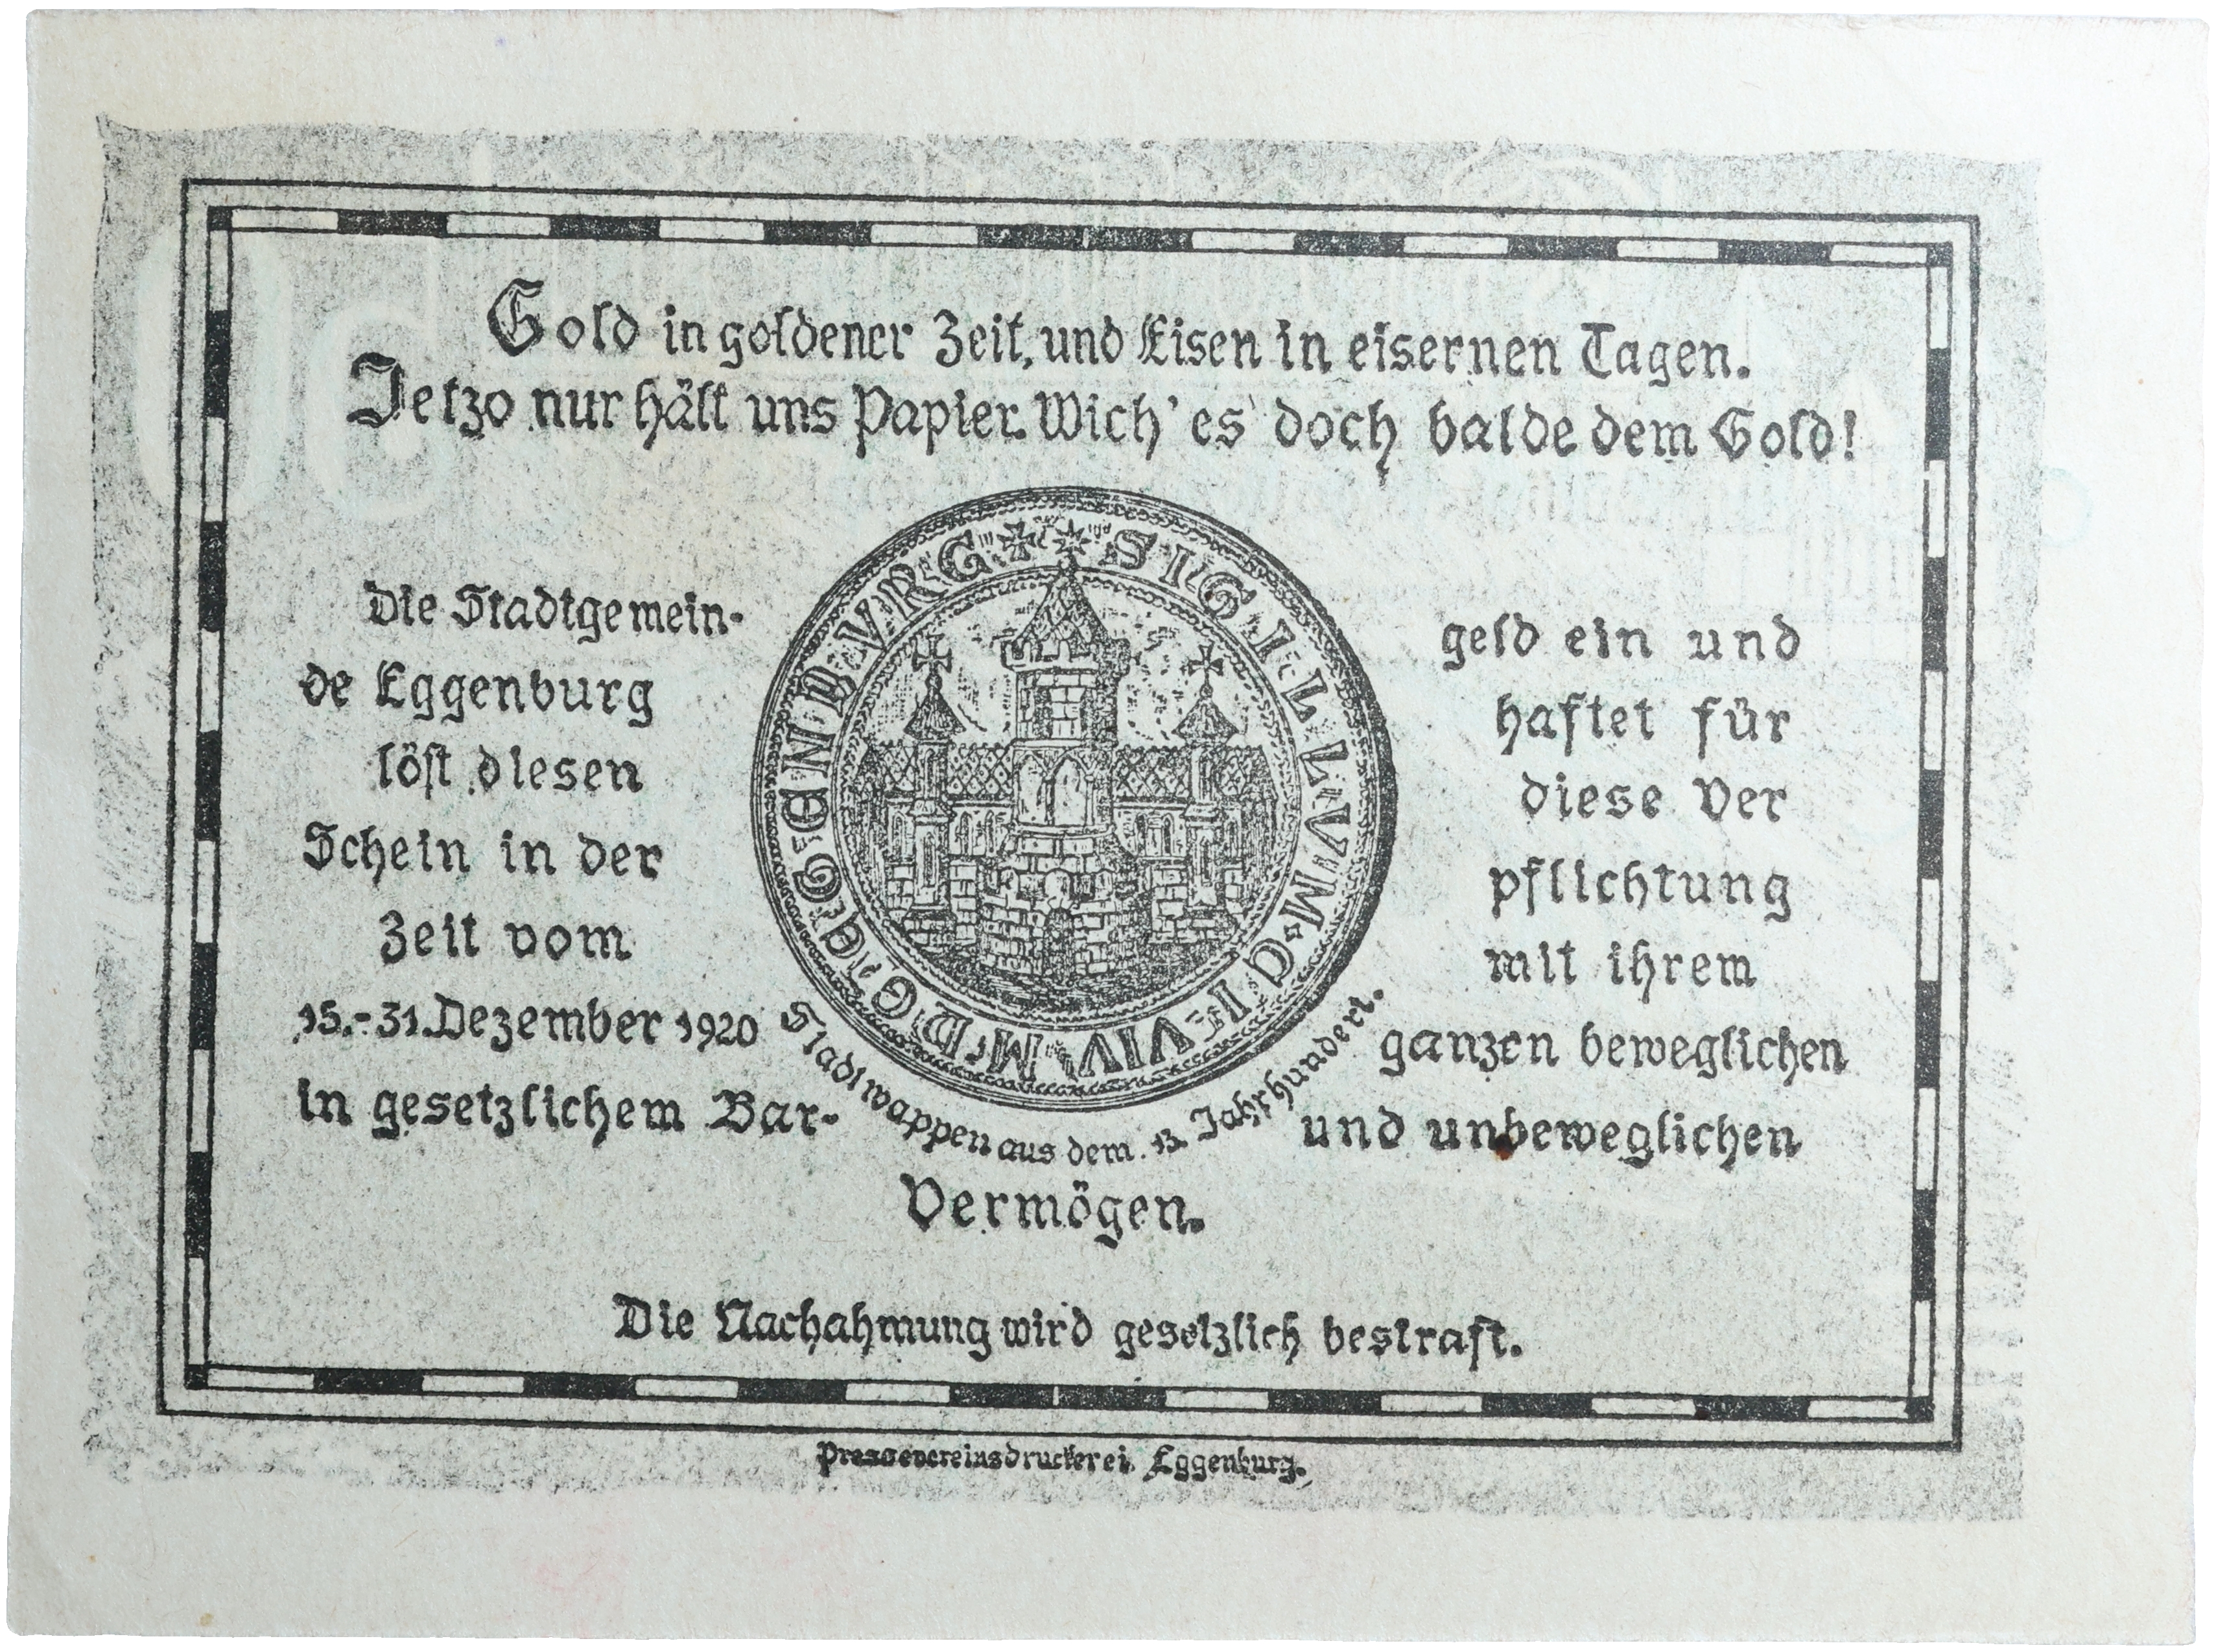 Gold in goldener Zeit, und Eisen in eisernen Tagen.
Jetzo nur hält uns Papier. Wich' es doch balde dem Gold!
Die Stadtgemein-
de Eggenburg
löst diesen
Schein in der
Zeit vom
15.-31. Dezember 1920
in gesetzlichem Bar-
geld ein und
haftet für
diese Ver
pflichtung
mit ihrem
ganzen beweglichen
und unbeweglichen
Vermögen.
SIGILLVM CIVIVM DG EGGENBVRG
Stadtwappen aus dem 13. Jahrhundert.
Die Nachahmung wird gesetzlich bestraft.
Pressevereinsdruckerei, Eggenburg.